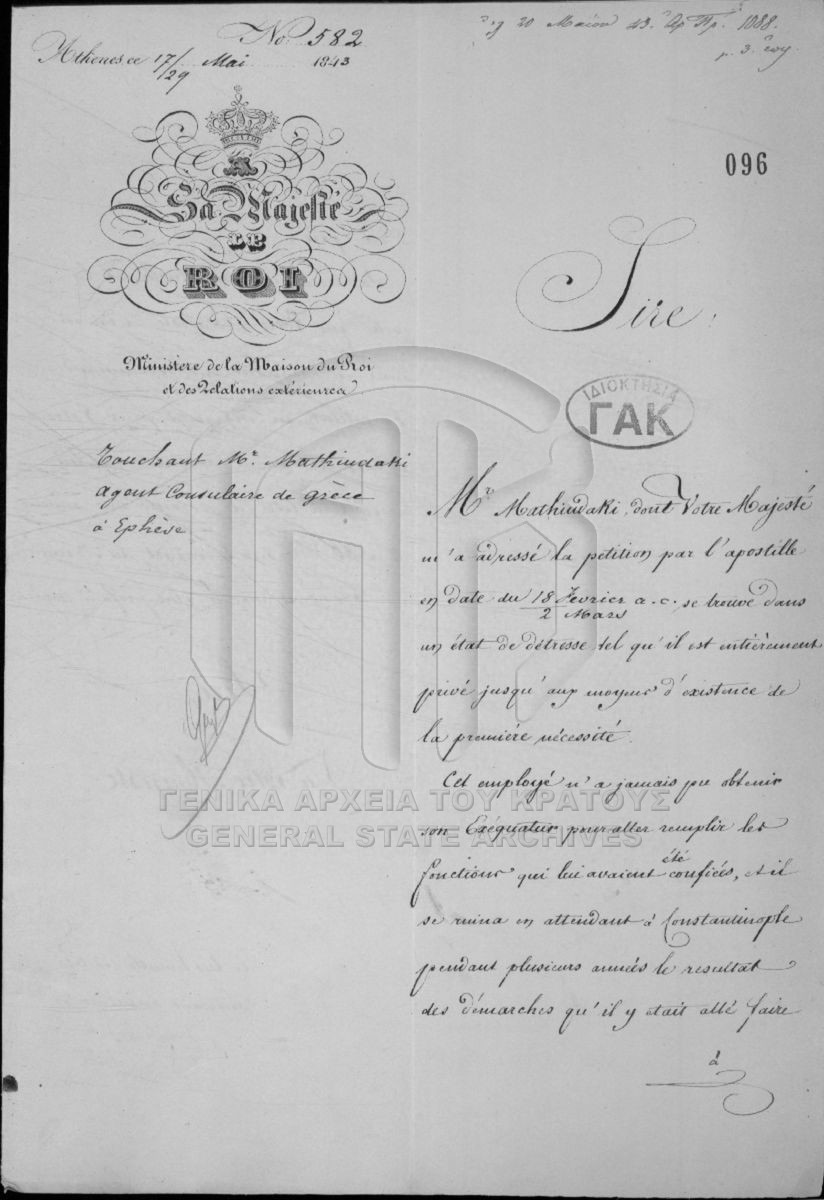 No. 582
Athenes ce 17/29 Mai 1843
20 Μαΐου 43. Αρ Πρ. 1088.
096
A
Sa Majesté
LE
ROI
Ministère de la Maison du Roi
et des Relations extérieures
Sire!
ΙΔΙΟΚΤΗΣΙΑ
ΓΑΚ
Touchant Mr. Mathiudaki
agent Consulaire de Grèce
à Ephèse
Mr Mathiudaki, dont Votre Majesté
m'a adressé la petition par l'apostille
en date du 18 Fevrier/2 Mars a.c., se trouve dans
un état de détresse tel qu'il est entièrement
privé jusqu'aux moyens d'existence de
la première nécessité.
Cet employé n'a jamais pu obtenir
son Exéquatur pour aller remplir les
fonctions qui lui avaient été confiées, et il
se ruina en attendant à Constantinople
pendant plusieurs années le resultat
des démarches qu'il y etait allé faire
à
ΓΕΝΙΚΑ ΑΡΧΕΙΑ ΤΟΥ ΚΡΑΤΟΥΣ
GENERAL STATE ARCHIVES